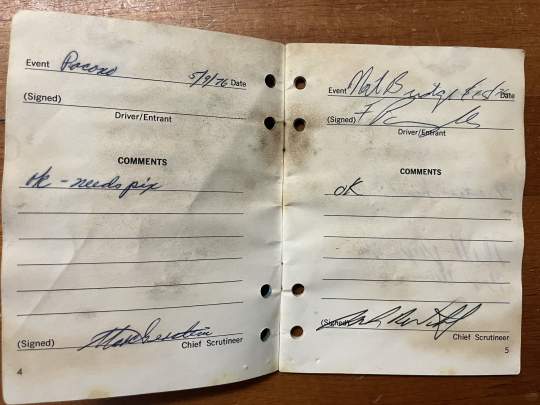 Event Pocono 5/9/76 Date
(Signed)
Driver/Entrant
COMMENTS
ok - needs pix
(Signed)
Chief Scrutineer
4
Event Date
(Signed)
Driver/Entrant
COMMENTS
OK
(Signed)
Chief Scrutineer
5